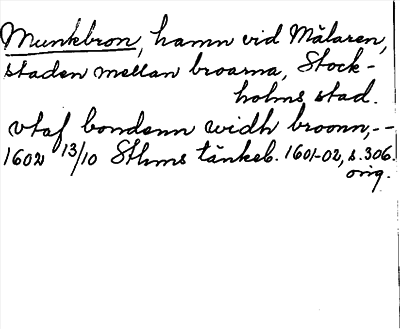 Munkbron, hamn vid Mälaren,
staden mellan broarna, Stock-
holms stad.
vtaf bondenn widh broonn,--
1602 13/10 Sthms tänkeb. 1601-02, s.306.
orig.